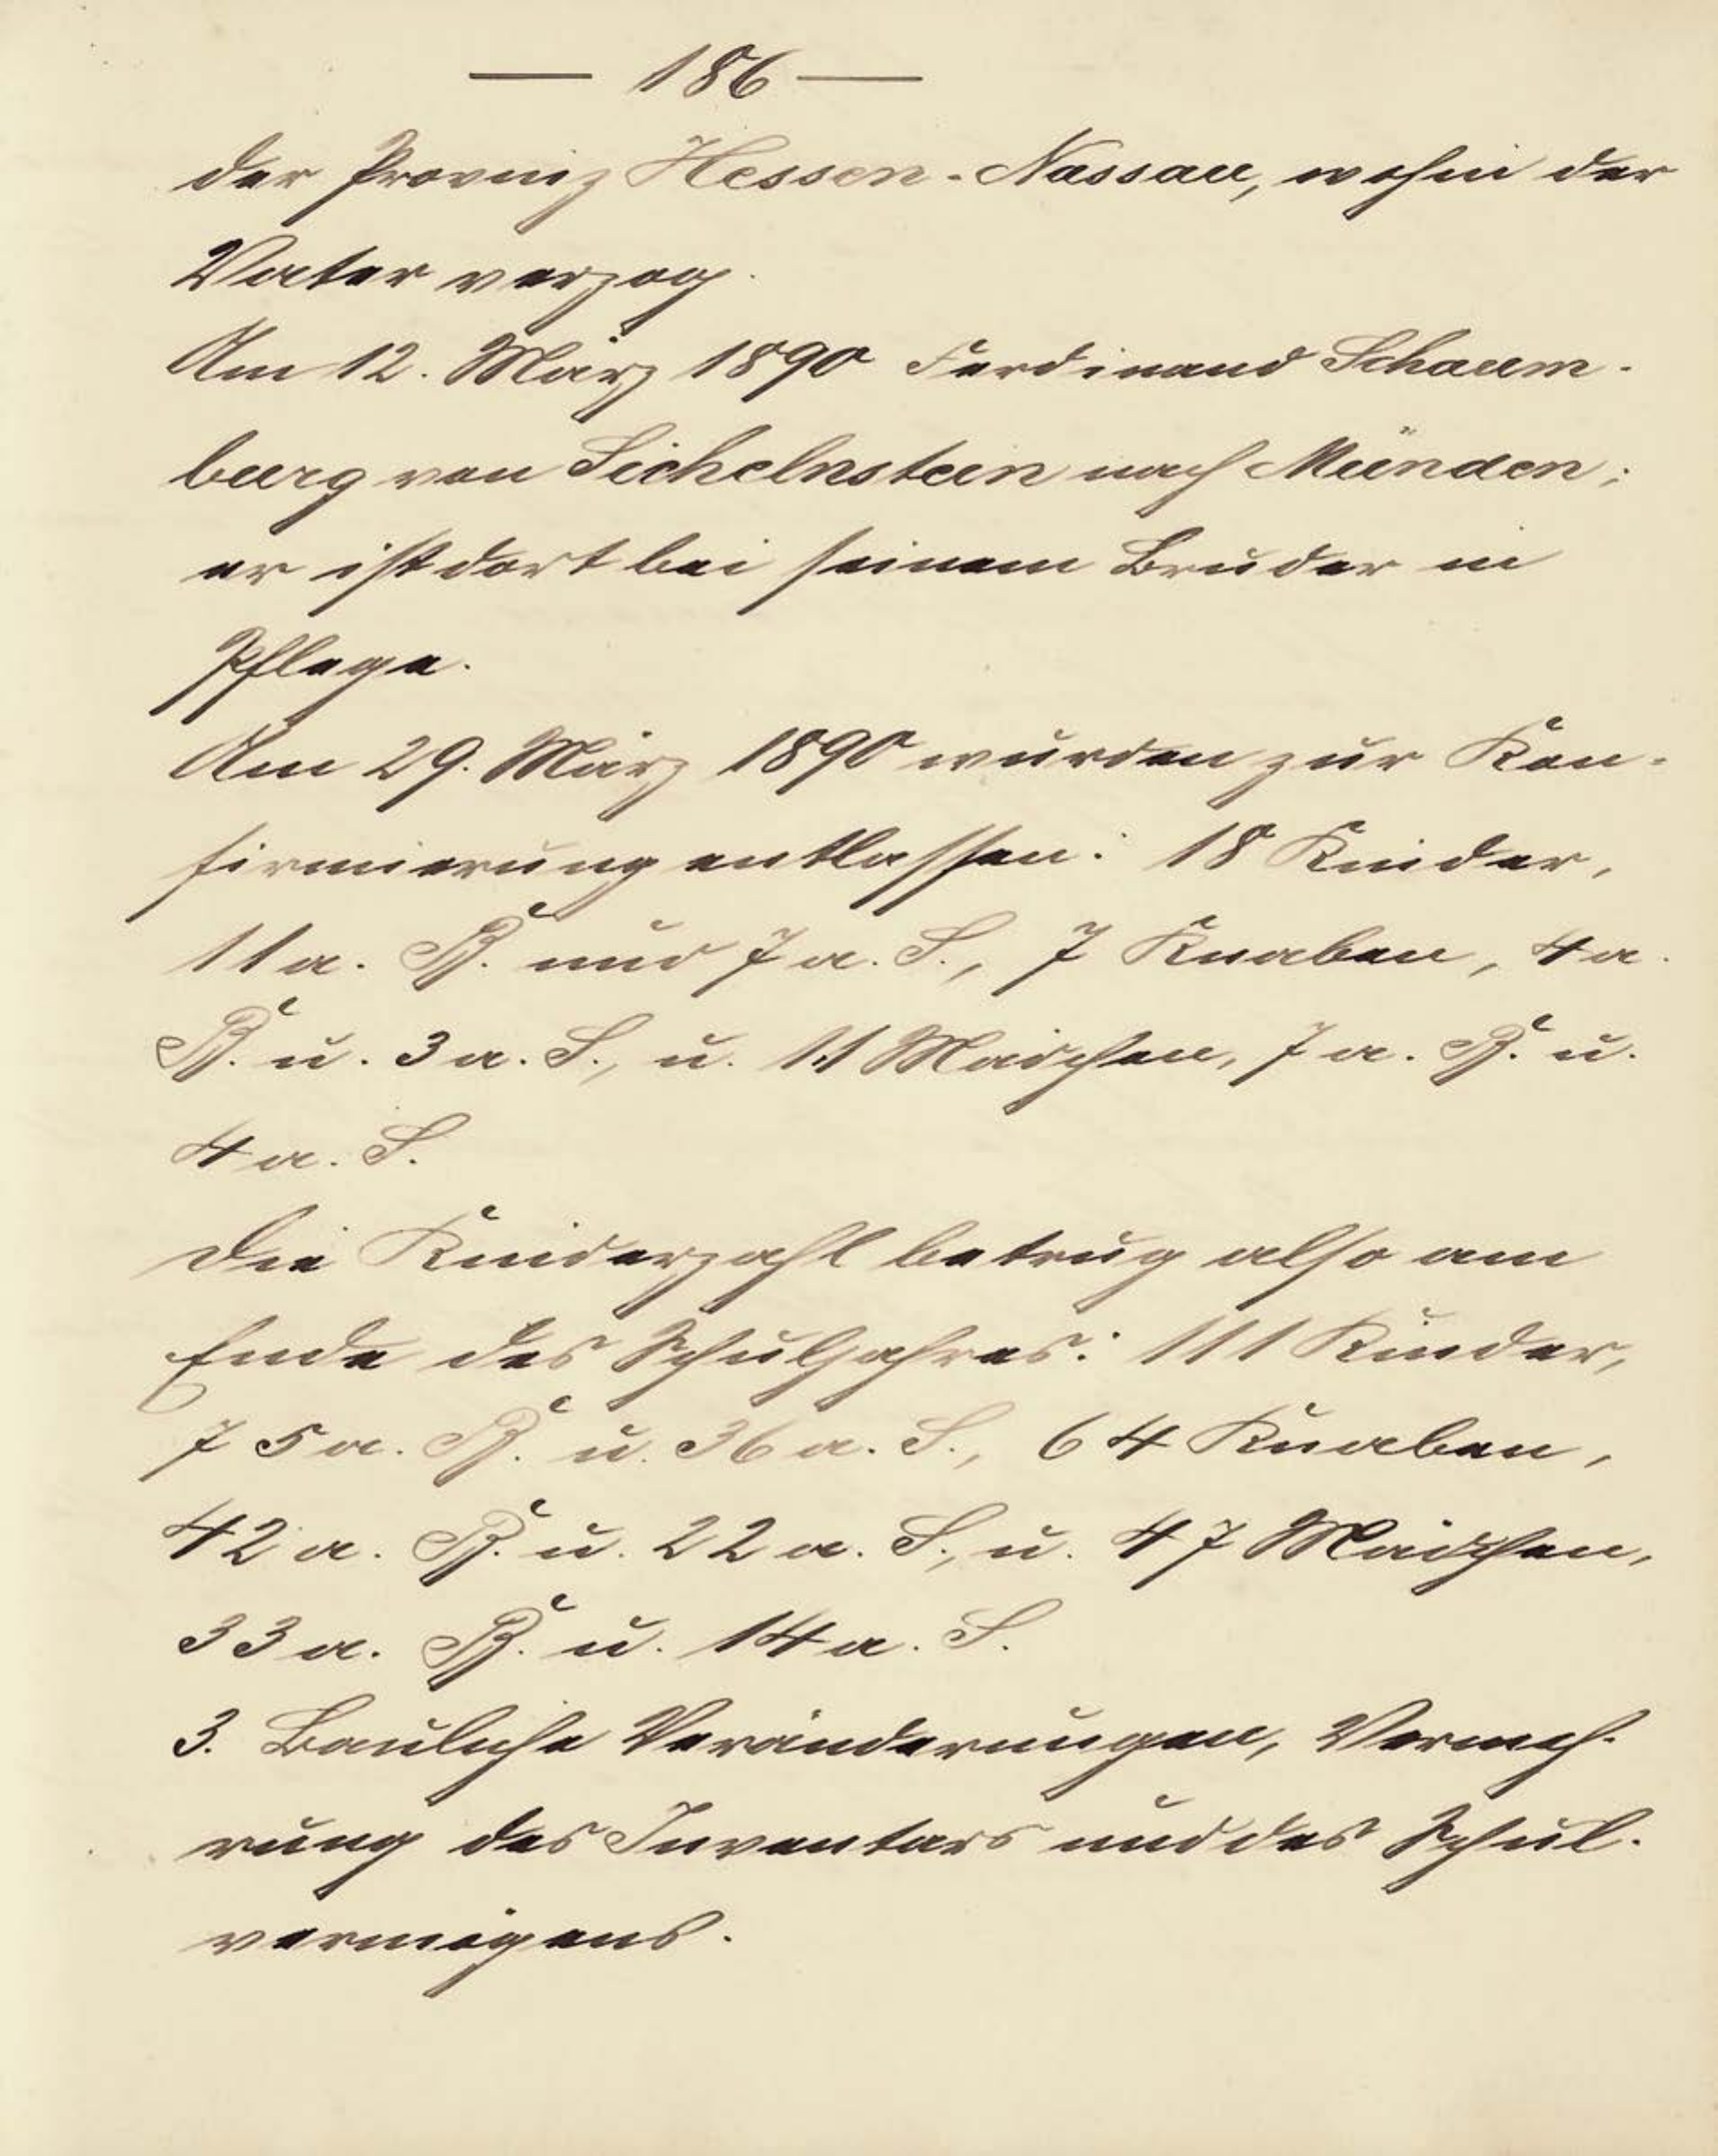 — 186 —
der Provinz Hessen-Nassau, wohin der
Vater verzog.
Am 12. März 1890 Ferdinand Schaum-
burg von Sichelnstein nach Münden;
er ist dort bei seinem Bruder in
Pflege.
Am 29. März 1890 wurden zur Kon-
firmierung entlassen: 18 Kinder,
11 a. B. und 7 a. S., 7 Knaben, 4 a.
B. u. 3 a. S., u. 11 Mädchen, 7 a. B. u.
4 a. S.
Die Kinderzahl betrug also am
Ende des Schuljahres: 111 Kinder,
75 a. B. u. 36 a. S., 64 Knaben,
42 a. B. u. 22 a. S., u. 47 Mädchen,
33 a. B. u. 14 a. S.
3. Bauliche Veränderungen, Vermeh-
rung des Inventars und des Schul-
vermögens.